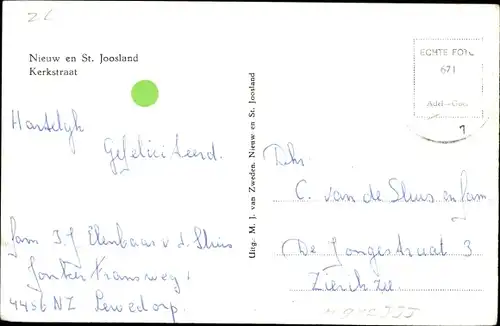 ZL
Nieuw en St. Joosland
Kerkstraat
Hartelijk
Gefeliciteerd.
fam I.J Elenbaas v.d. Sluis
Jonker Fransweg 1
4456 NZ Lewedorp.
Uitg. M. J. van Zweden, Nieuw en St. Joosland
ECHTE FOTO
671
7
C. van de Sluis en fam
De Jongestraat 3
Zierikzee